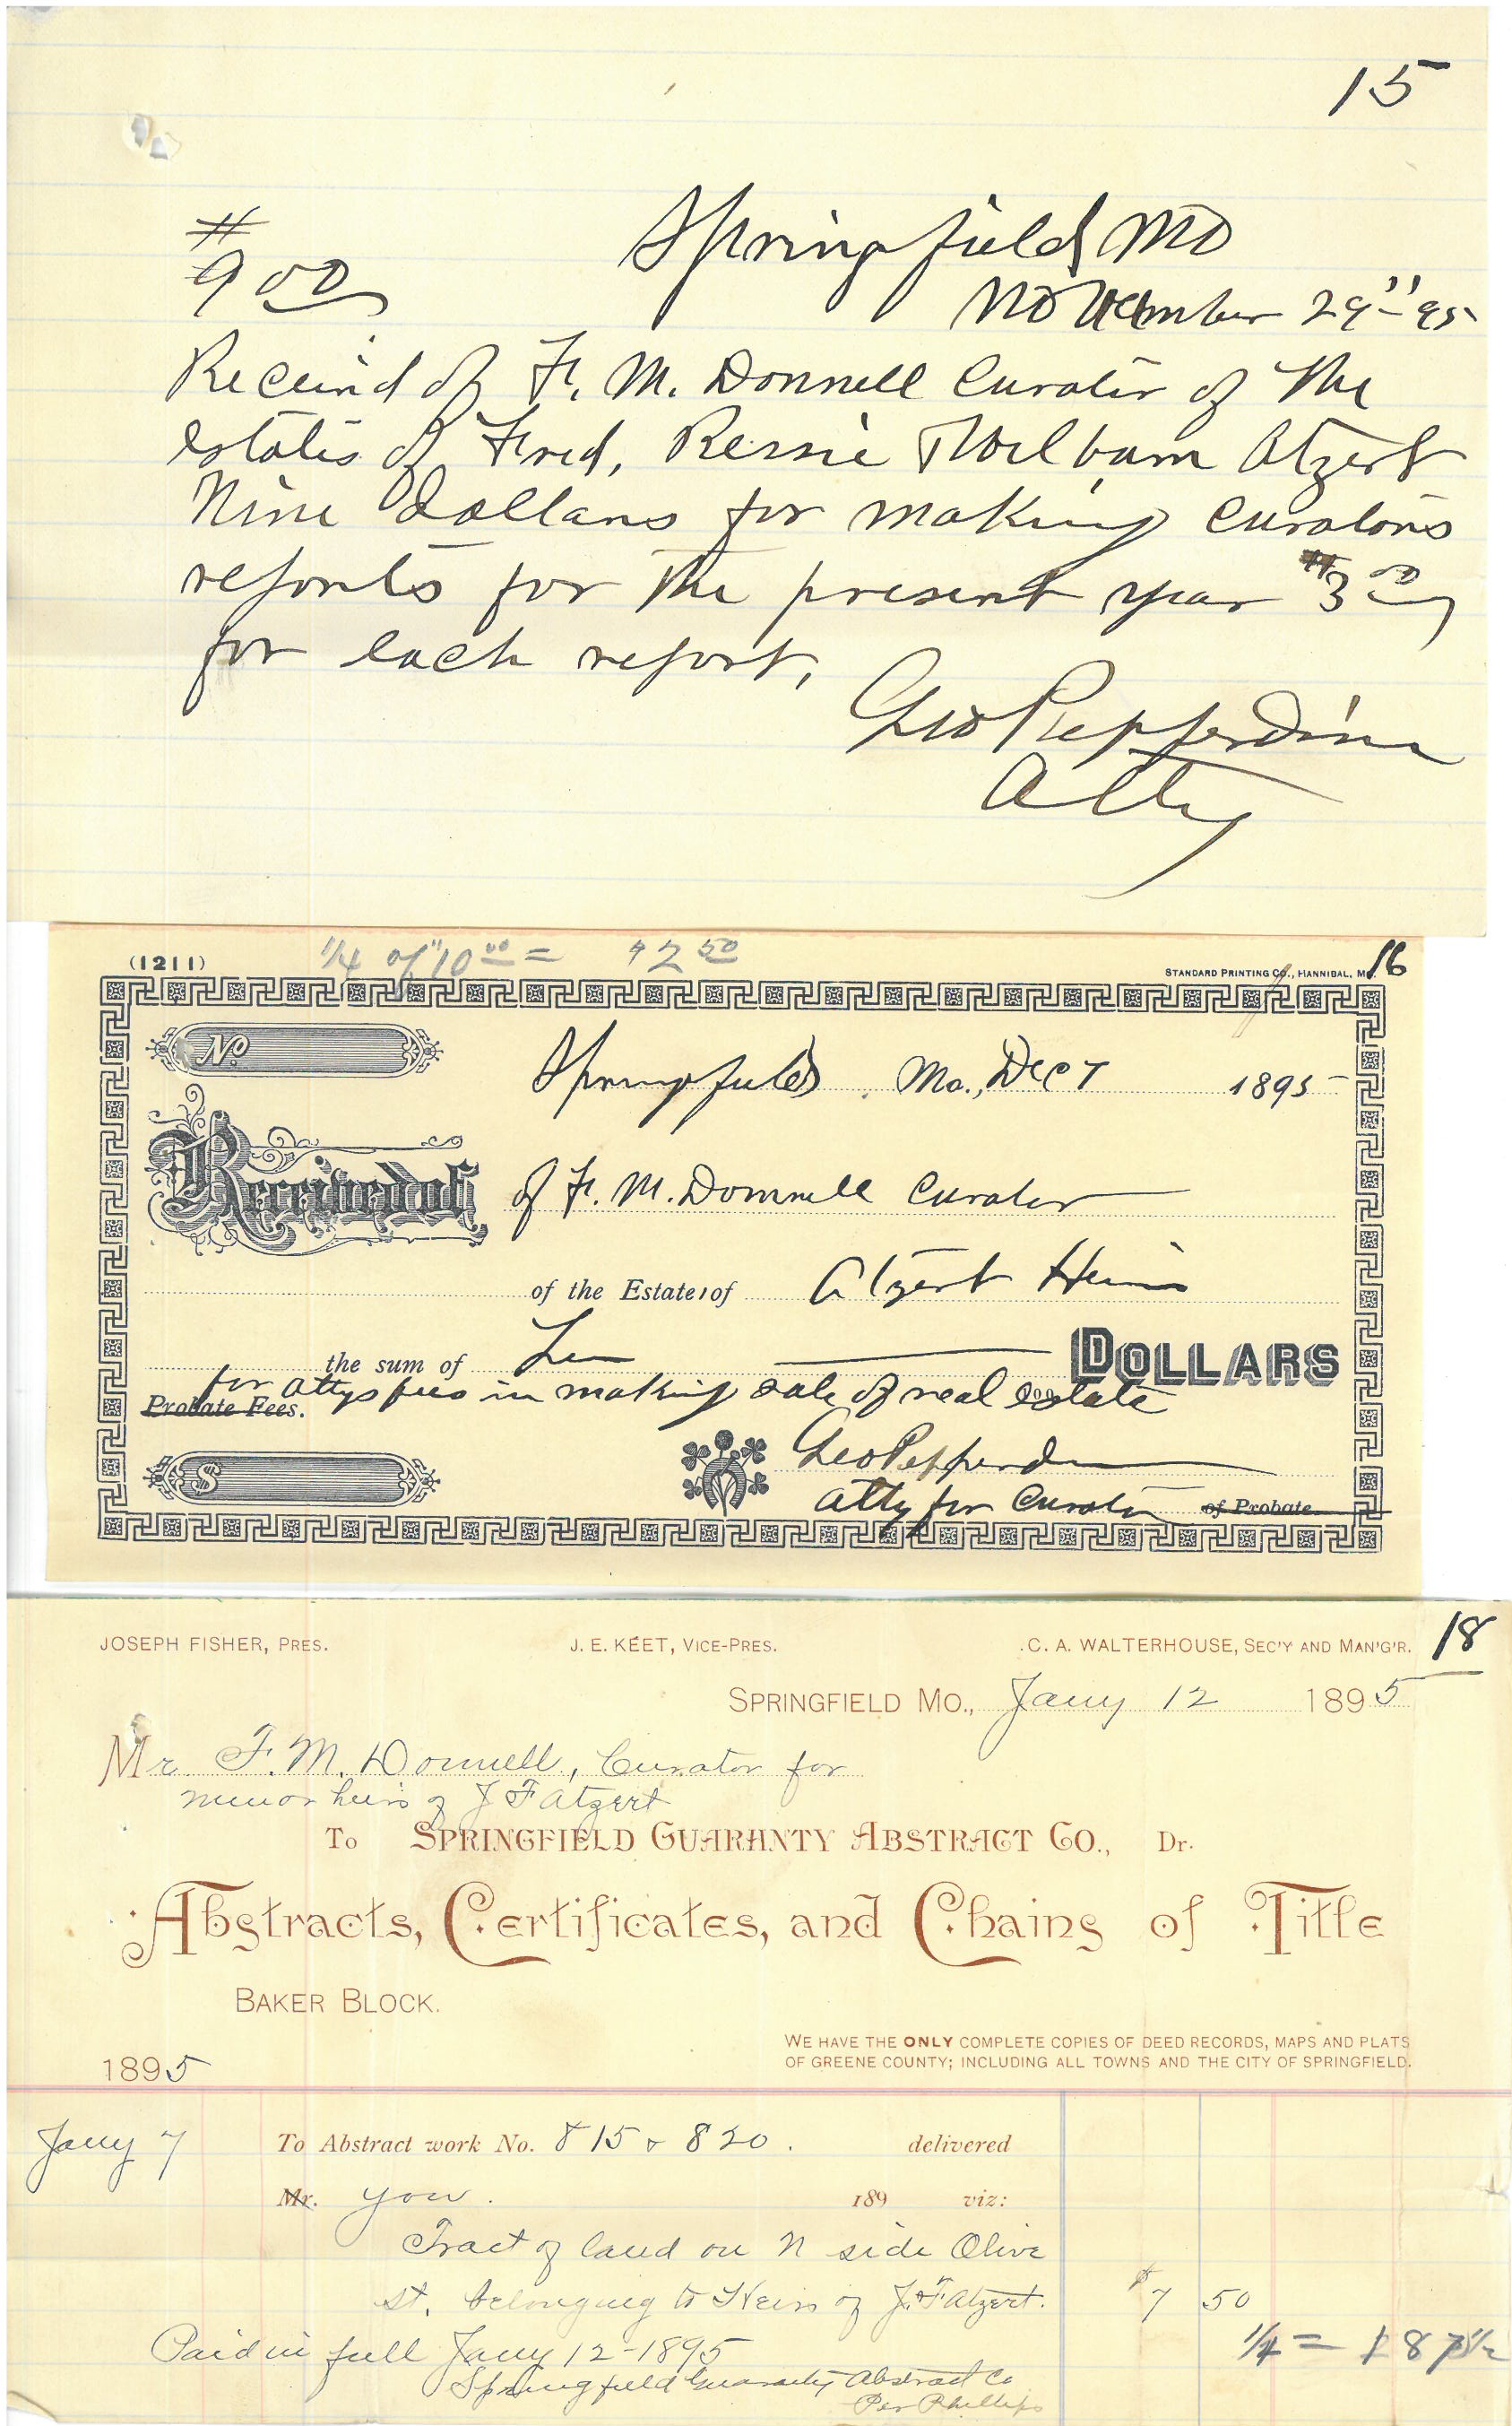 15
#
9 00
Springfield MO
November 29" 95
Received of F. M. Donnell Curator of the
estates of Fred, Bessie & William Atzert
Nine dollars for making Curators
reports for the present year #3 00
for each report,
Geo Pepperdine
Atty
(1211)
1/4 of "10 00 = $2 50
STANDARD PRINTING CO., HANNIBAL, M
16
No
Springfield Mo., Dec 7 1895
Received of of F. M. Donnell Curator
of the Estate of Atzert Heirs
the sum of Ten DOLLARS
for attys fees in making sale of real estate
Probate Fees.
100
Geo Pepperdine
$
atty for Curator of Probate
18
JOSEPH FISHER, PRES. J. E. KEET, VICE-PRES. C. A. WALTERHOUSE, SEC'Y AND MAN'G'R.
SPRINGFIELD MO., Jany 12 1895
Mr. F. M. Donnell, Curator for
minor heirs of J F Atzert
To SPRINGFIELD GUARANTY ABSTRACT CO., Dr.
Abstracts, Certificates, and Chains of Title
BAKER BLOCK.
WE HAVE THE ONLY COMPLETE COPIES OF DEED RECORDS, MAPS AND PLATS
OF GREENE COUNTY; INCLUDING ALL TOWNS AND THE CITY OF SPRINGFIELD.
1895
Jany 7 To Abstract work No. 815 & 820. delivered
Mr. you. 189 viz:
Tract of land on N side Olive
st. belonging to Heirs of J. F Atzert. $7 50
1/4 = 1 87 1/2
Paid in full Jany 12-1895
Springfield Guaranty Abstract Co
Per Phillips